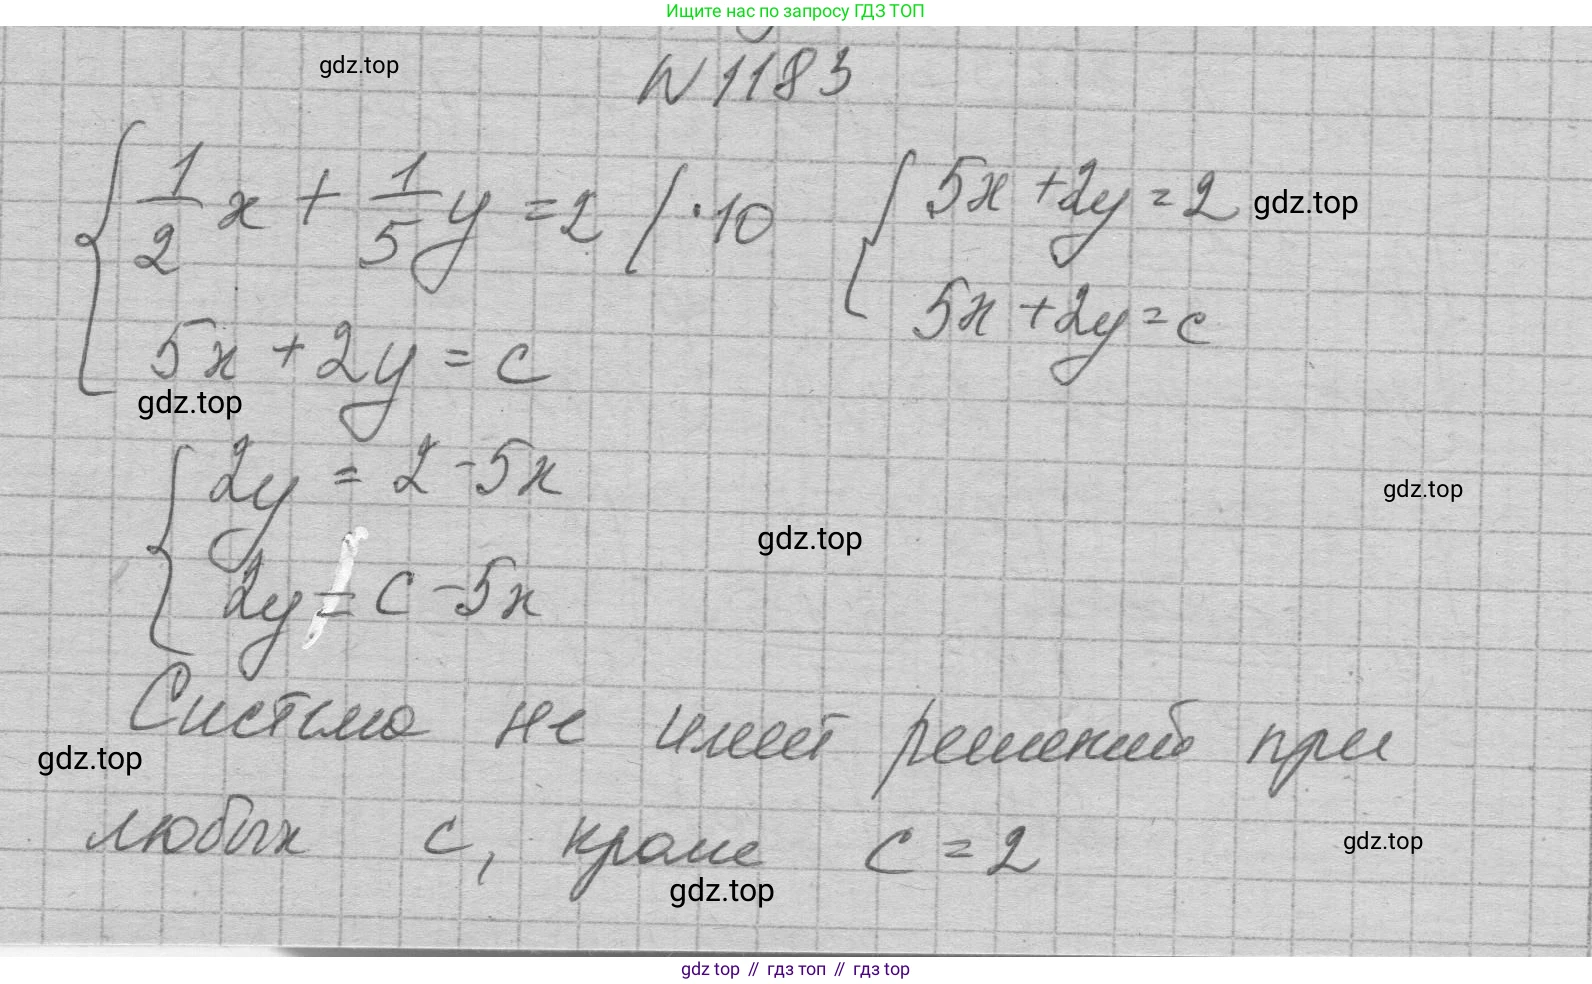 Ищите нас по запросу ГДЗ ТОП
gdz.top
N 1183
{ 1/2 x + 1/5 y = 2 / · 10
5x + 2y = c
{ 5x + 2y = 2
gdz.top
5x + 2y = c
gdz.top
{ 2y = 2 - 5x
2y = c - 5x
gdz.top
gdz.top
Система не имеет решений при
gdz.top
любых c, кроме c = 2
gdz.top
gdz.top
gdz.top // гдз топ // гдз top